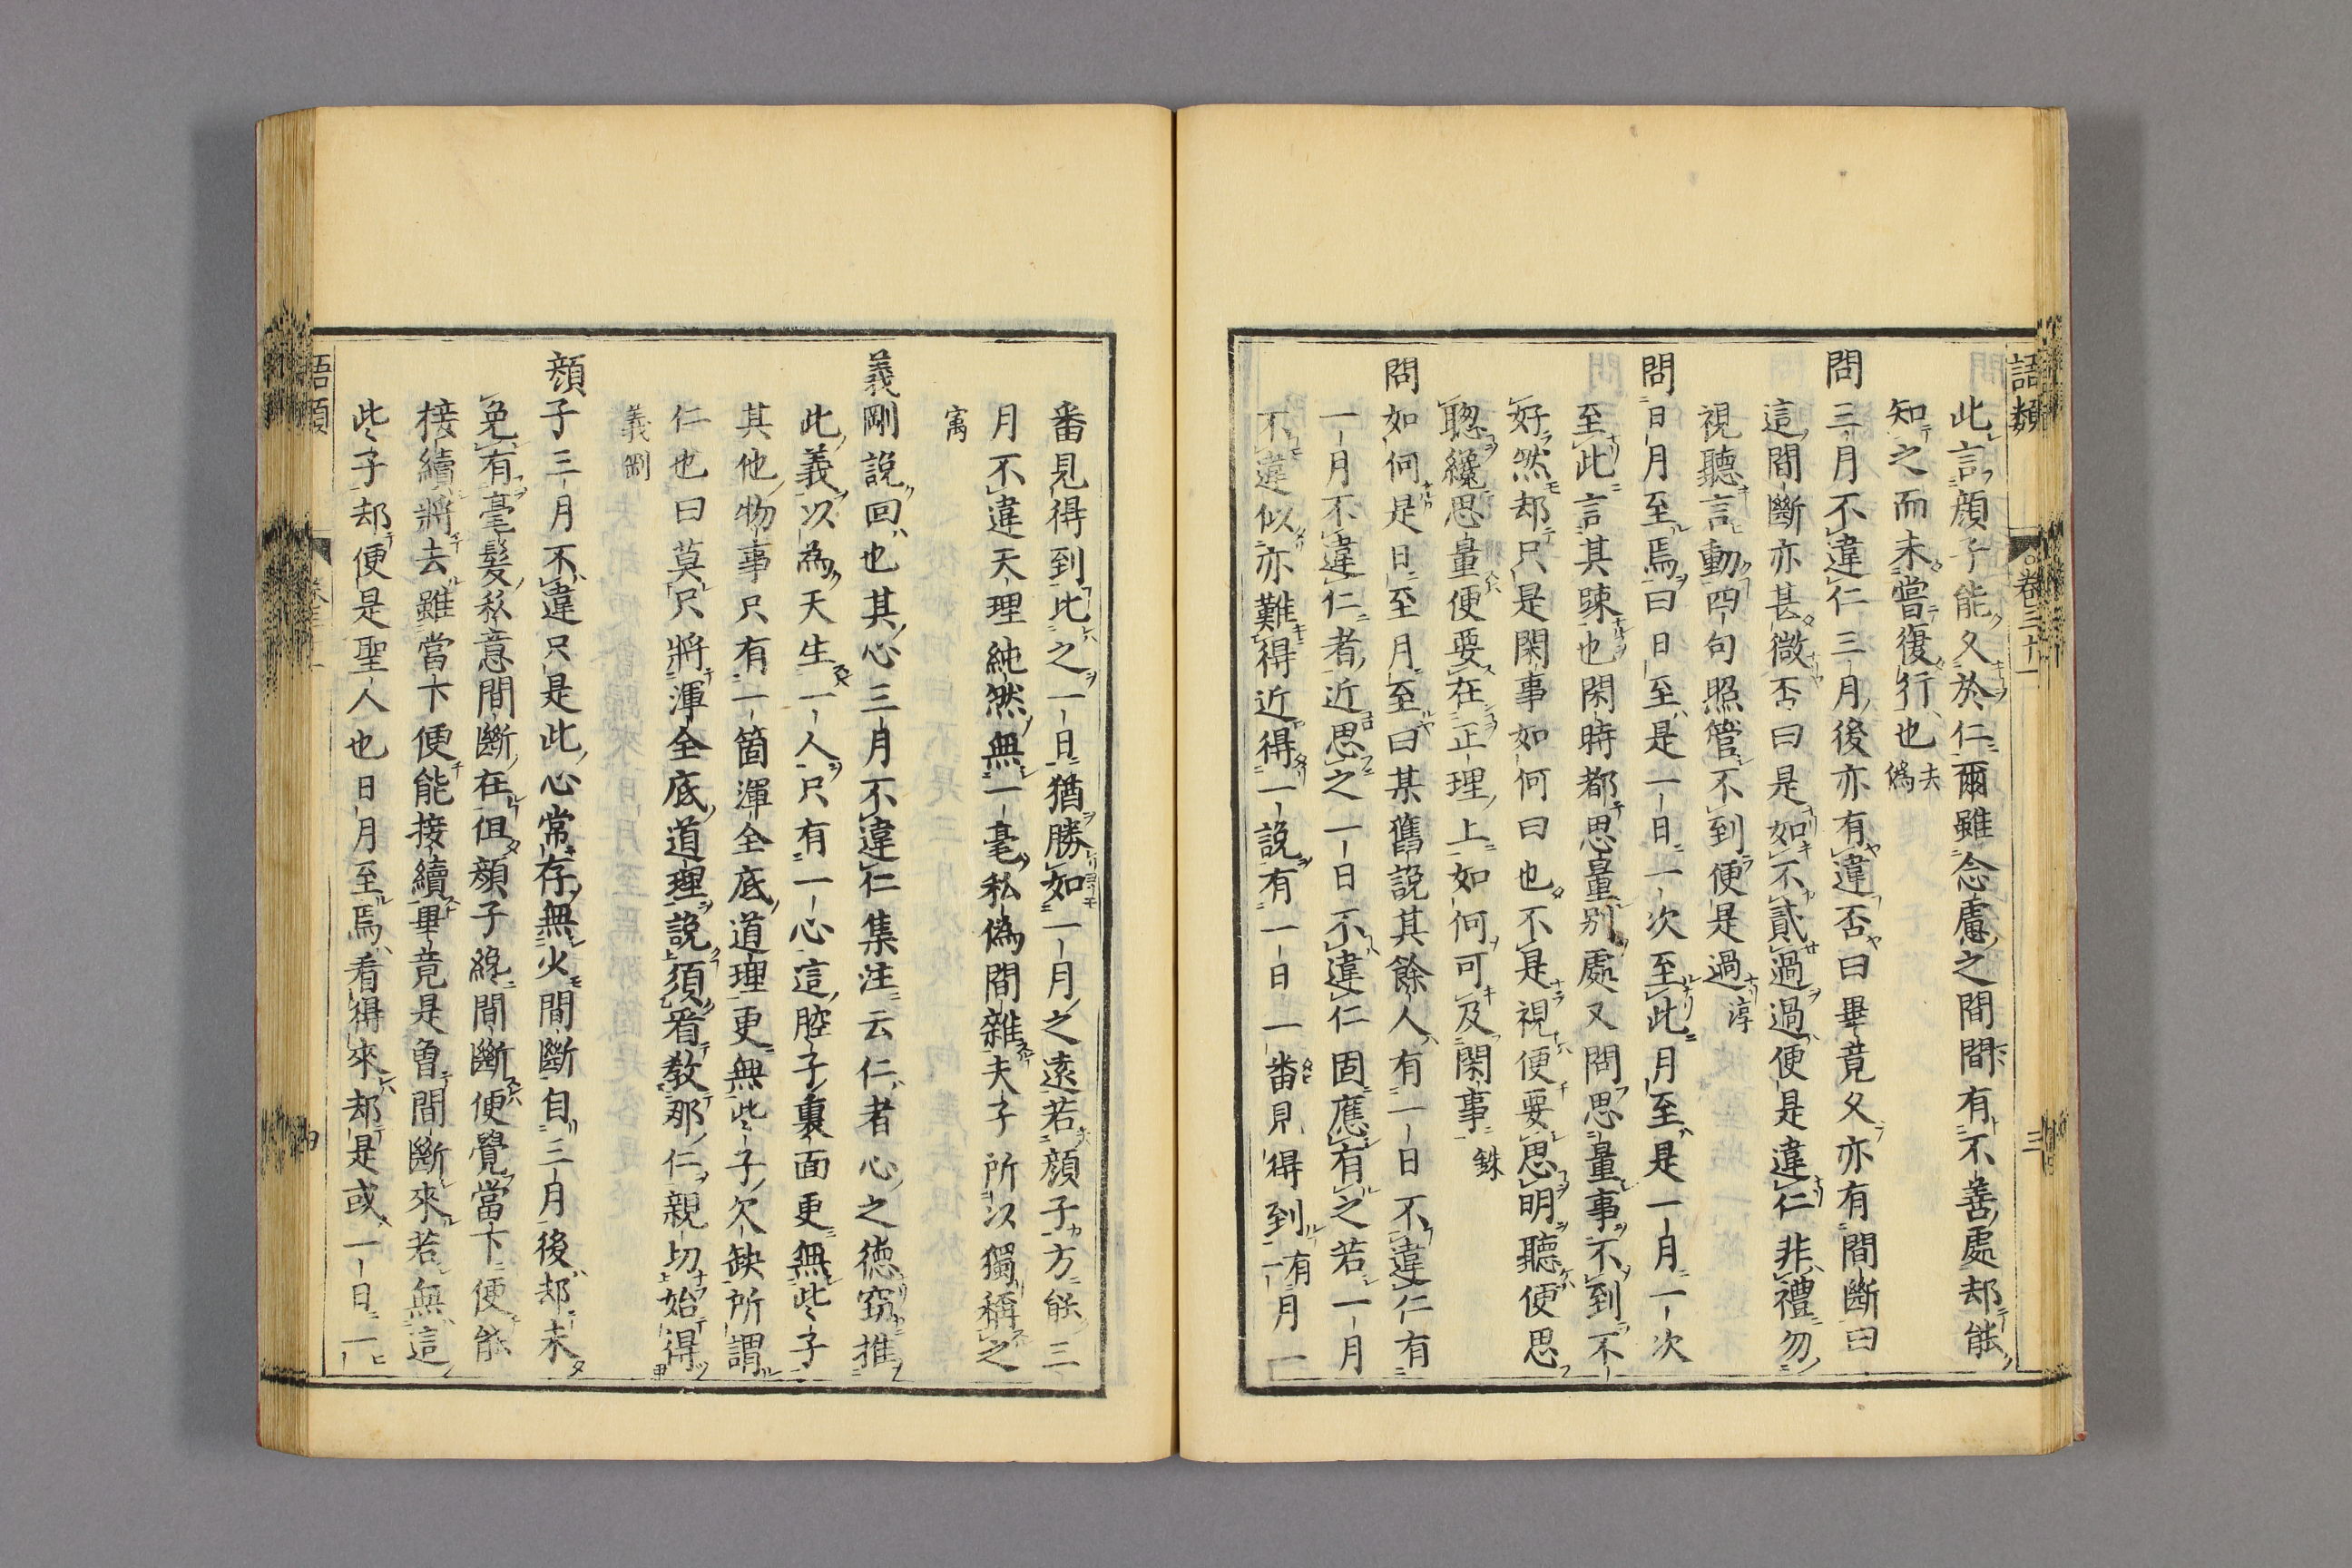 語類
卷三十一
三
此言顔子能久於仁爾雖念慮之間間有不善處却能
知之而未嘗復行也 去偽
問三月不違仁三月後亦有違否曰畢竟久亦有間斷曰
這間斷亦甚微否曰是如不貳過過便是違仁非禮勿
視聽言動四句照管不到便是過 淳
問日月至焉曰日至是一日一次至此月至是一月一次
至此言其疎也閑時都思量別處又問思量事不到不
好然却只是閑事如何曰也不是視便要思明聽便思
聰纔思量便要在正理上如何可及閑事 銖
問如何是日至月至曰某舊說其餘人有一日不違仁有
一月不違仁者近思之一日不違仁固應有之若一月
不違似亦難得近得一說有一日一番見得到有一月一
番見得到比之一日猶勝如一月之遠若顔子方能三
月不違天理純然無一毫私偽間雜夫子所以獨稱之
㝢
義剛說回也其心三月不違仁集注云仁者心之德竊推
此義以為天生一人只有一心這腔子裏面更無些子
其他物事只有一箇渾全底道理更無些子欠缺所謂
仁也曰莫只將渾全底道理說須看敎那仁親切始得
義剛
顔子三月不違只是此心常存無少間斷自三月後却未
免有毫髮私意間斷在但顔子纔間斷便覺當下便能
接續將去雖當下便能接續畢竟是曾間斷來若無這
些子却便是聖人也日月至焉看得來却是或一日一
語類